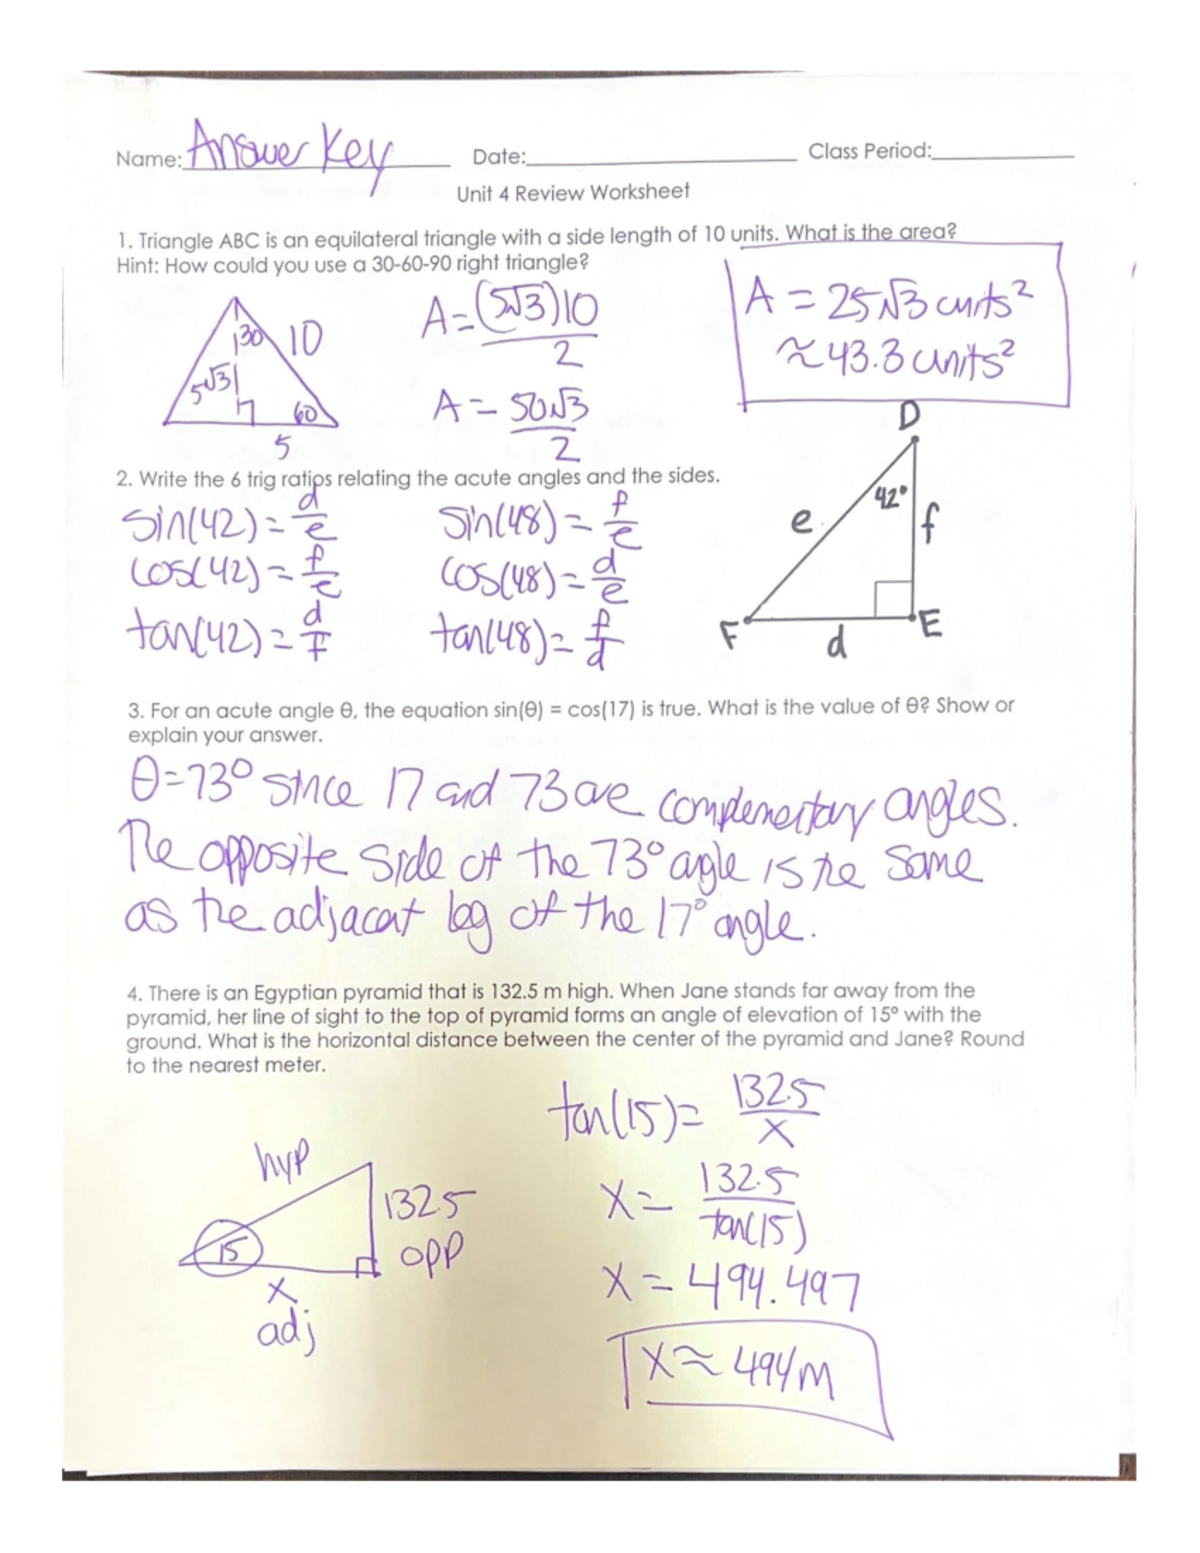 Name: Answer Key Date: Class Period:
Unit 4 Review Worksheet
1. Triangle ABC is an equilateral triangle with a side length of 10 units. What is the area?
Hint: How could you use a 30-60-90 right triangle?
30 10
5√3
60
5
A = (5√3)10 / 2
A = 50√3 / 2
A = 25√3 units²
≈ 43.3 units²
2. Write the 6 trig ratios relating the acute angles and the sides.
sin(42) = d/e sin(48) = f/e
cos(42) = f/e cos(48) = d/e
tan(42) = d/f tan(48) = f/d
D
42°
e f
F d E
3. For an acute angle θ, the equation sin(θ) = cos(17) is true. What is the value of θ? Show or
explain your answer.
θ=73° since 17 and 73 are complementary angles.
The opposite side of the 73° angle is the same
as the adjacent leg of the 17° angle.
4. There is an Egyptian pyramid that is 132.5 m high. When Jane stands far away from the
pyramid, her line of sight to the top of pyramid forms an angle of elevation of 15° with the
ground. What is the horizontal distance between the center of the pyramid and Jane? Round
to the nearest meter.
hyp
132.5
opp
15
x
adj
tan(15) = 132.5 / x
x = 132.5 / tan(15)
x = 494.497
x ≈ 494m